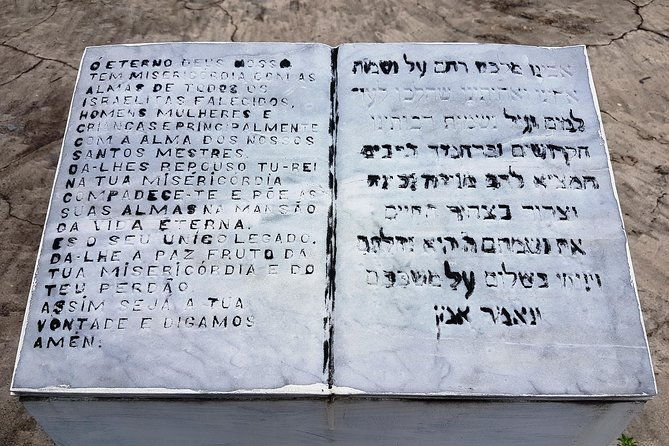 O ETERNO DEUS NOSSO
TEM MISERICÓRDIA COM AS
ALMAS DE TODOS OS
ISRAELITAS FALECIDOS,
HOMENS MULHERES E
CRIANCAS E PRINCIPALMENTE
COM A ALMA DOS NOSSOS
SANTOS MESTRES.
DA-LHES REPOUSO TU-REI
NA TUA MISERICÓRDIA
COMPADECE-TE E PÕE AS
SUAS ALMAS NA MANSÃO
DA VIDA ETERNA.
ES O SEU UNICO LEGADO.
DA-LHE A PAZ FRUTO DA
TUA MISERICÓRDIA E DO
TEU PERDÃO
ASSIM SEJA A TUA
VONTADE E DIGAMOS
AMÉN.
אבינו רחם על נשמת
על נשמות רבותינו
הקדושים
וצרור בצרור החיים
את נשמתם ה הוא נחלתם
וינוחו בשלום על משכבם
ונאמר אמן